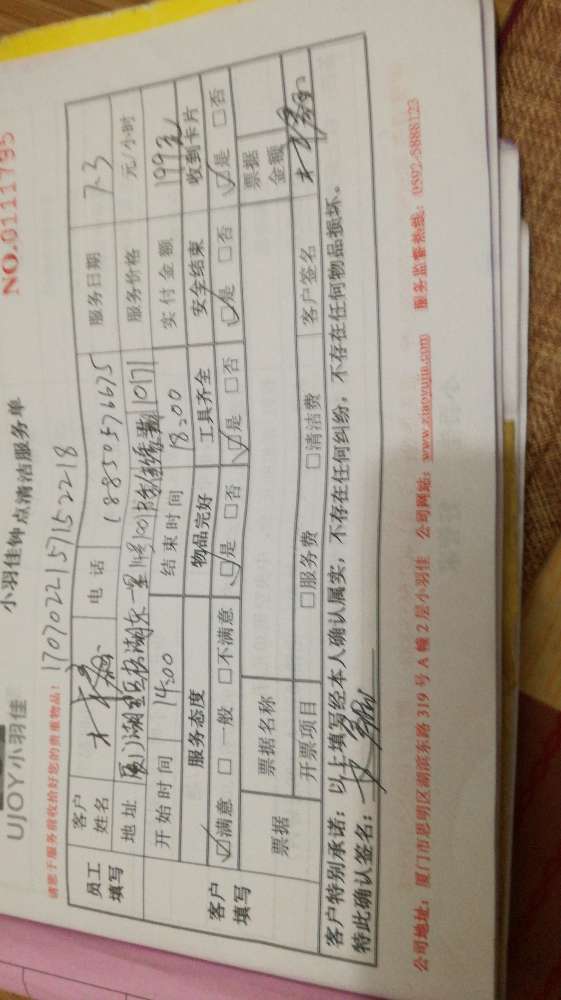 UJOY小羽佳 小羽佳钟点清洁服务单 NO.0111795
请您于服务前收拾好您的贵重物品! 1707022157152218
员工填写 客户姓名 电话 18850576675 服务日期 7.3
地址 服务价格 元/小时
开始时间 14:00 结束时间 18:00 实付金额 199元
客户填写 服务态度 物品完好 工具齐全 安全结束 收到卡片
☑满意 □一般 □不满意 ☑是 □否 ☑是 □否 ☑是 □否 ☑是 □否
票据 票据名称 票据金额
开票项目 □服务费 □清洁费 客户签名
客户特别承诺: 以上填写经本人确认属实, 不存在任何纠纷, 不存在任何物品损坏。
特此确认签名:
公司地址: 厦门市思明区湖滨东路319号A幢2层小羽佳 公司网站: www.xiaoyujia.com 服务监督热线: 0592-5888123